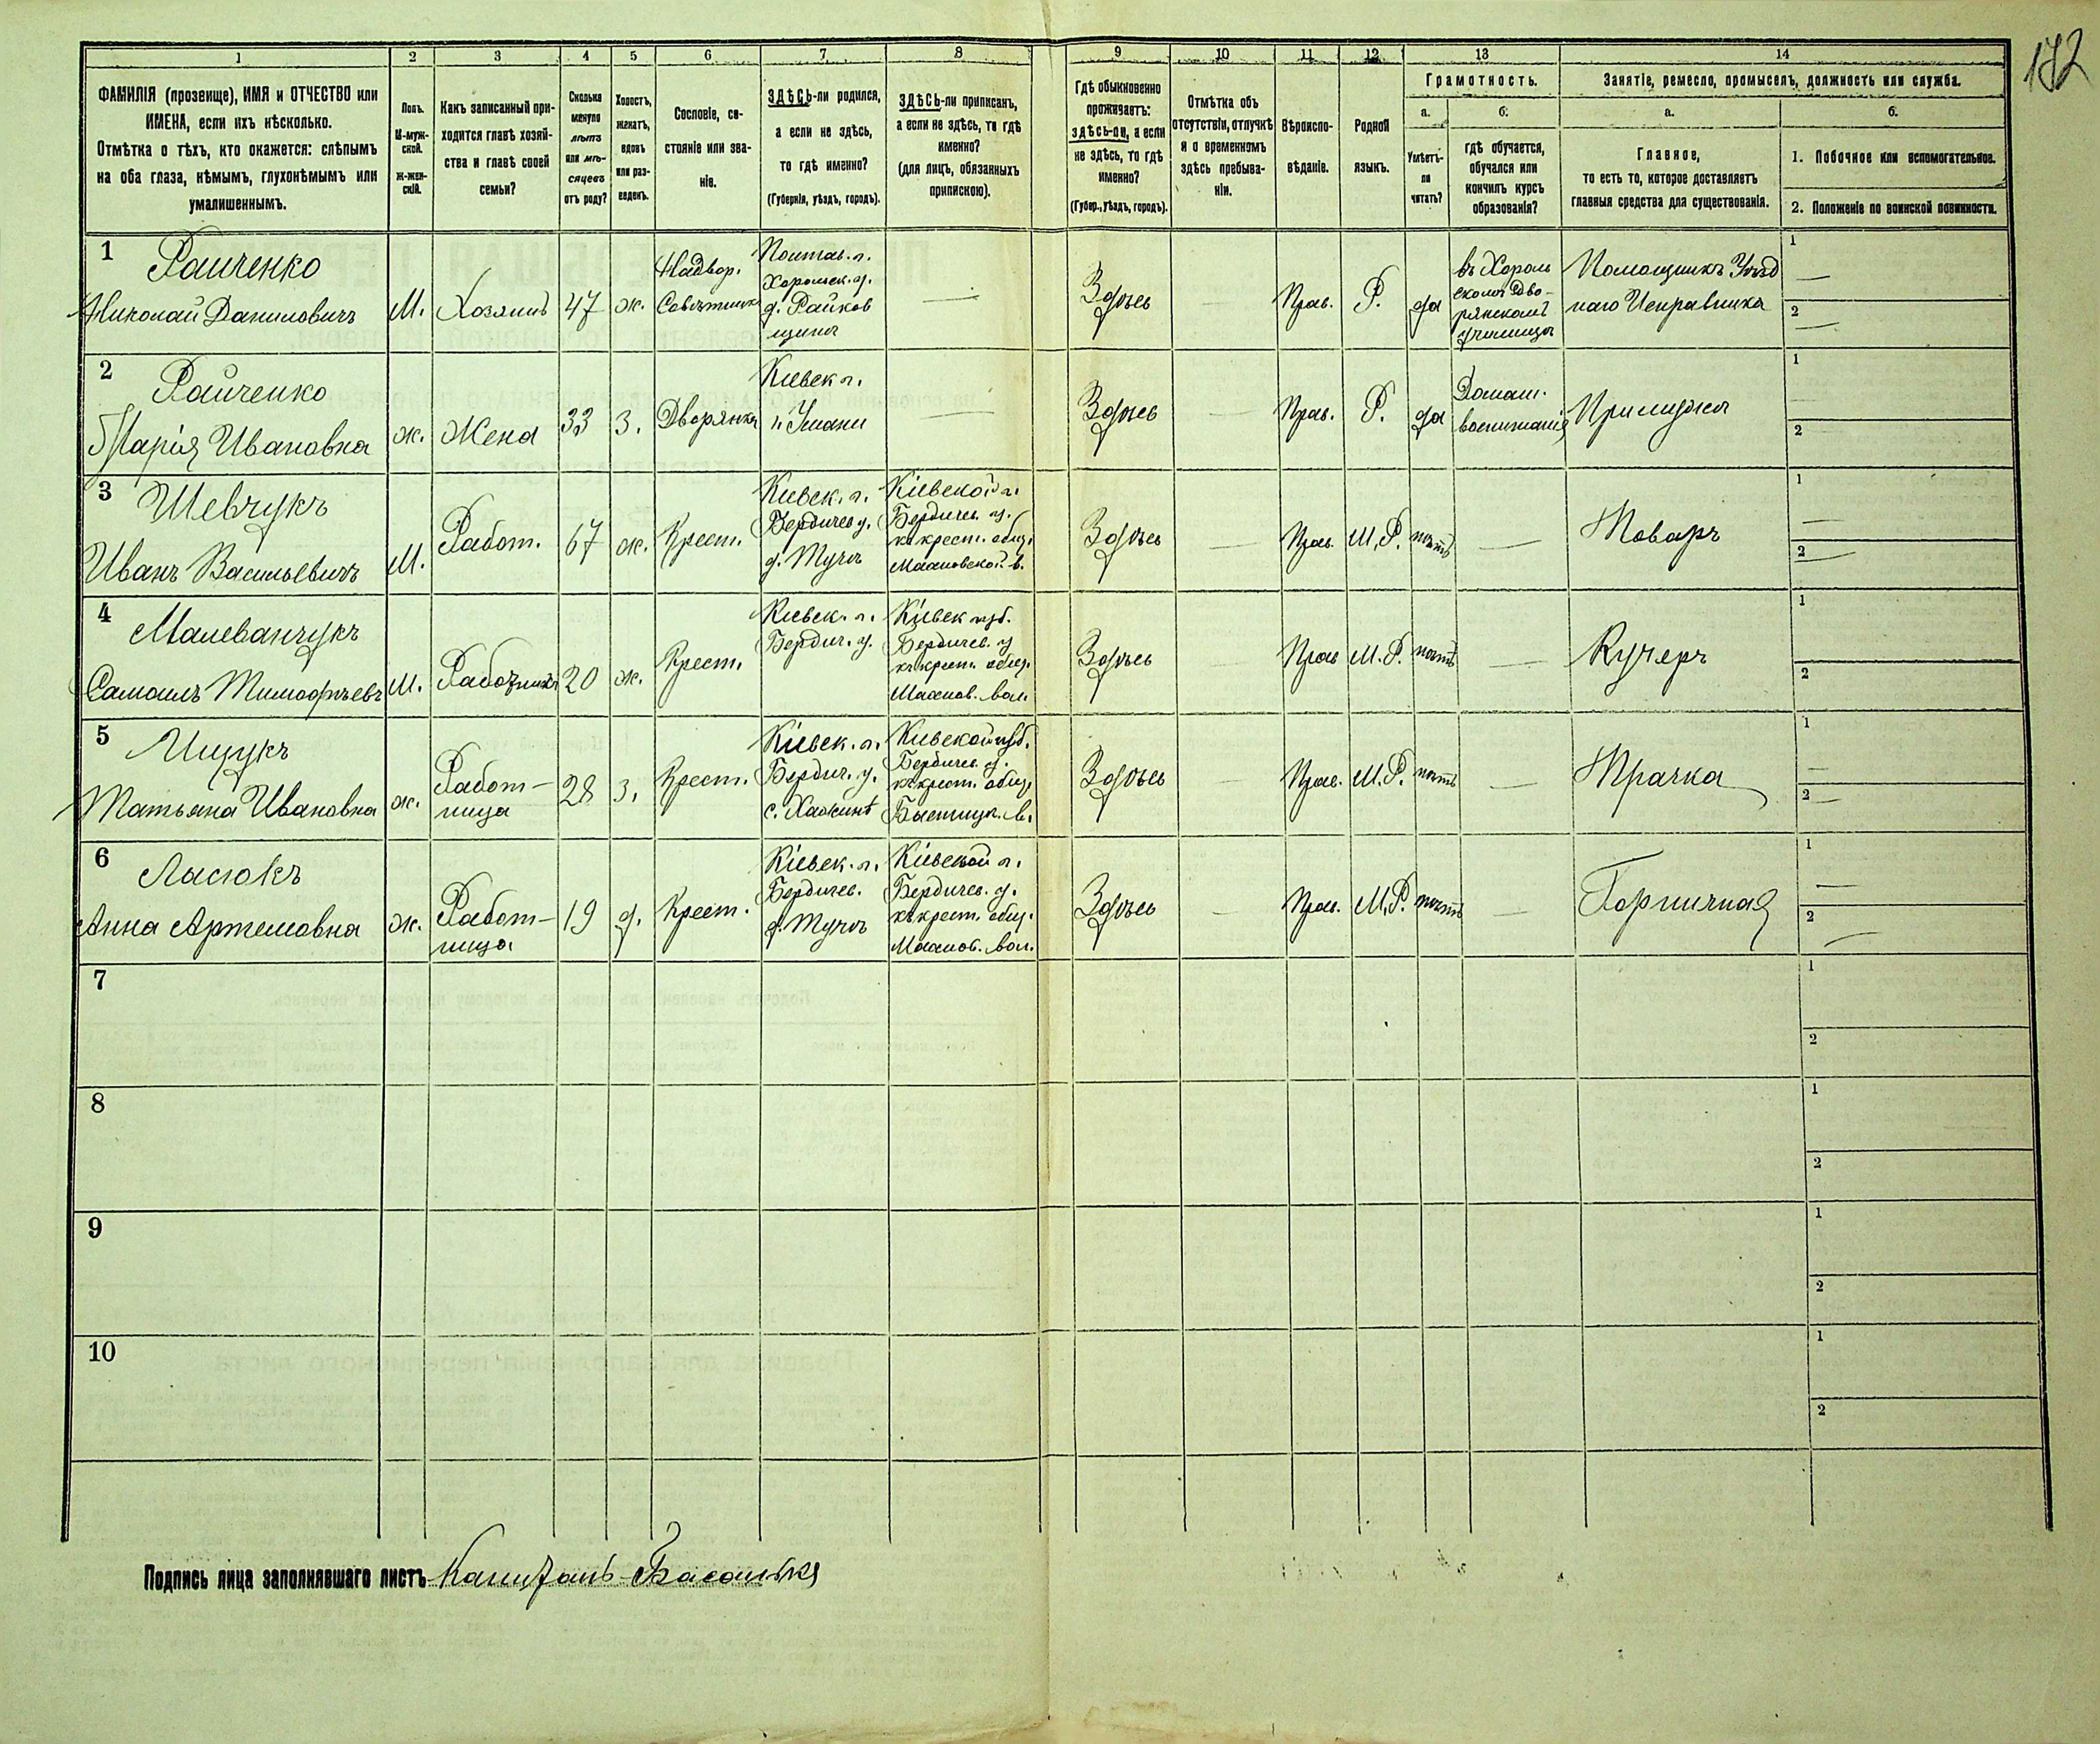 172
1 2 3 4 5 6 7 8 9 10 11 12 13 14
ФАМИЛІЯ (прозвище), ИМЯ и ОТЧЕСТВО или
ИМЕНА, если ихъ нѣсколько.
Отмѣтка о тѣхъ, кто окажется: слѣпымъ
на оба глаза, нѣмымъ, глухонѣмымъ или
умалишеннымъ.
Полъ.
М-муж-
ской.
Ж-жен-
скій.
Какъ записанный при-
ходится главѣ хозяй-
ства и главѣ своей
семьи?
Сколько
минуло
лѣтъ
или мѣ-
сяцевъ
отъ роду?
Холостъ,
женатъ,
вдовъ
или раз-
веденъ.
Сословіе, со-
стояніе или зва-
ніе.
ЗДѢСЬ-ли родился,
а если не здѣсь,
то гдѣ именно?
(Губернія, уѣздъ, городъ).
ЗДѢСЬ-ли приписанъ,
а если не здѣсь, то гдѣ
именно?
(для лицъ, обязанныхъ
припискою).
Гдѣ обыкновенно
проживаетъ:
здѣсь-ли, а если
не здѣсь, то гдѣ
именно?
(Губер., уѣздъ, городъ).
Отмѣтка объ
отсутствіи, отлучкѣ
и о временномъ
здѣсь пребыва-
ніи.
Вѣроиспо-
вѣданіе.
Родной
языкъ.
Грамотность.
а.
Умѣетъ-
ли
читать?
б.
гдѣ обучается,
обучался или
кончилъ курсъ
образованія?
Занятіе, ремесло, промыселъ, должность или служба.
а.
Главное,
то есть то, которое доставляетъ
главныя средства для существованія.
б.
1. Побочное или вспомогательное.
2. Положеніе по воинской повинности.
1
Райченко
Николай Даниловичъ
М.
Хозяинъ
47
ж.
Надвор.
Совѣтникъ
Полтав. г.
Хорольск. у.
д. Райков
щина
—
Здѣсь
—
Прав.
Р.
да
въ Хороль
скомъ Дво-
рянскомъ
училищѣ
Помощникъ Уѣзд
наго Исправника
1
—
2
—
2
Райченко
Марія Ивановна
ж.
Жена
33
З.
Дворянка
Кіевск г.
г. Умани
—
Здѣсь
—
Прав.
Р.
да
Домаш.
воспитанія
При мужѣ
1
2
3
Шевчукъ
Иванъ Васильевичъ
М.
Работ.
67
ж.
Крест.
Кіевск. г.
Бердичев у.
д. Туча
Кіевской г.
Бердичев. у.
къ крест. общ.
Махновской в.
Здѣсь
—
Прав.
М.Р.
нѣтъ
—
Поваръ
1
—
2
—
4
Малеванчукъ
Самоилъ Тимофѣевъ
М.
Работникъ
20
ж.
Крест.
Кіевск. г.
Бердич. у.
Кіевск губ.
Бердичев. у
къ крест. общ.
Махнов. вол.
Здѣсь
—
Прав
М.Р.
нѣтъ
—
Кучеръ
1
2
5
Ищукъ
Татьяна Ивановна
ж.
Работ-
ница
28
З.
Крест.
Кіевск. г.
Бердич. у.
с. Хажинѣ
Кіевской губ.
Бердичев. у.
къ крест. общ.
Быстриц. в.
Здѣсь
—
Прав.
М.Р.
нѣтъ
—
Прачка
1
—
2
—
6
Ласюкъ
Анна Артемовна
ж.
Работ-
ница
19
д.
Крест.
Кіевск. г.
Бердичев.
д. Туча
Кіевской г.
Бердичев. у.
къ крест. общ.
Махнов. вол.
Здѣсь
—
Прав.
М.Р.
нѣтъ
—
Горничная
1
—
2
—
7
1
2
8
1
2
9
1
2
10
1
2
Подпись лица заполнявшаго листъ Капитанъ